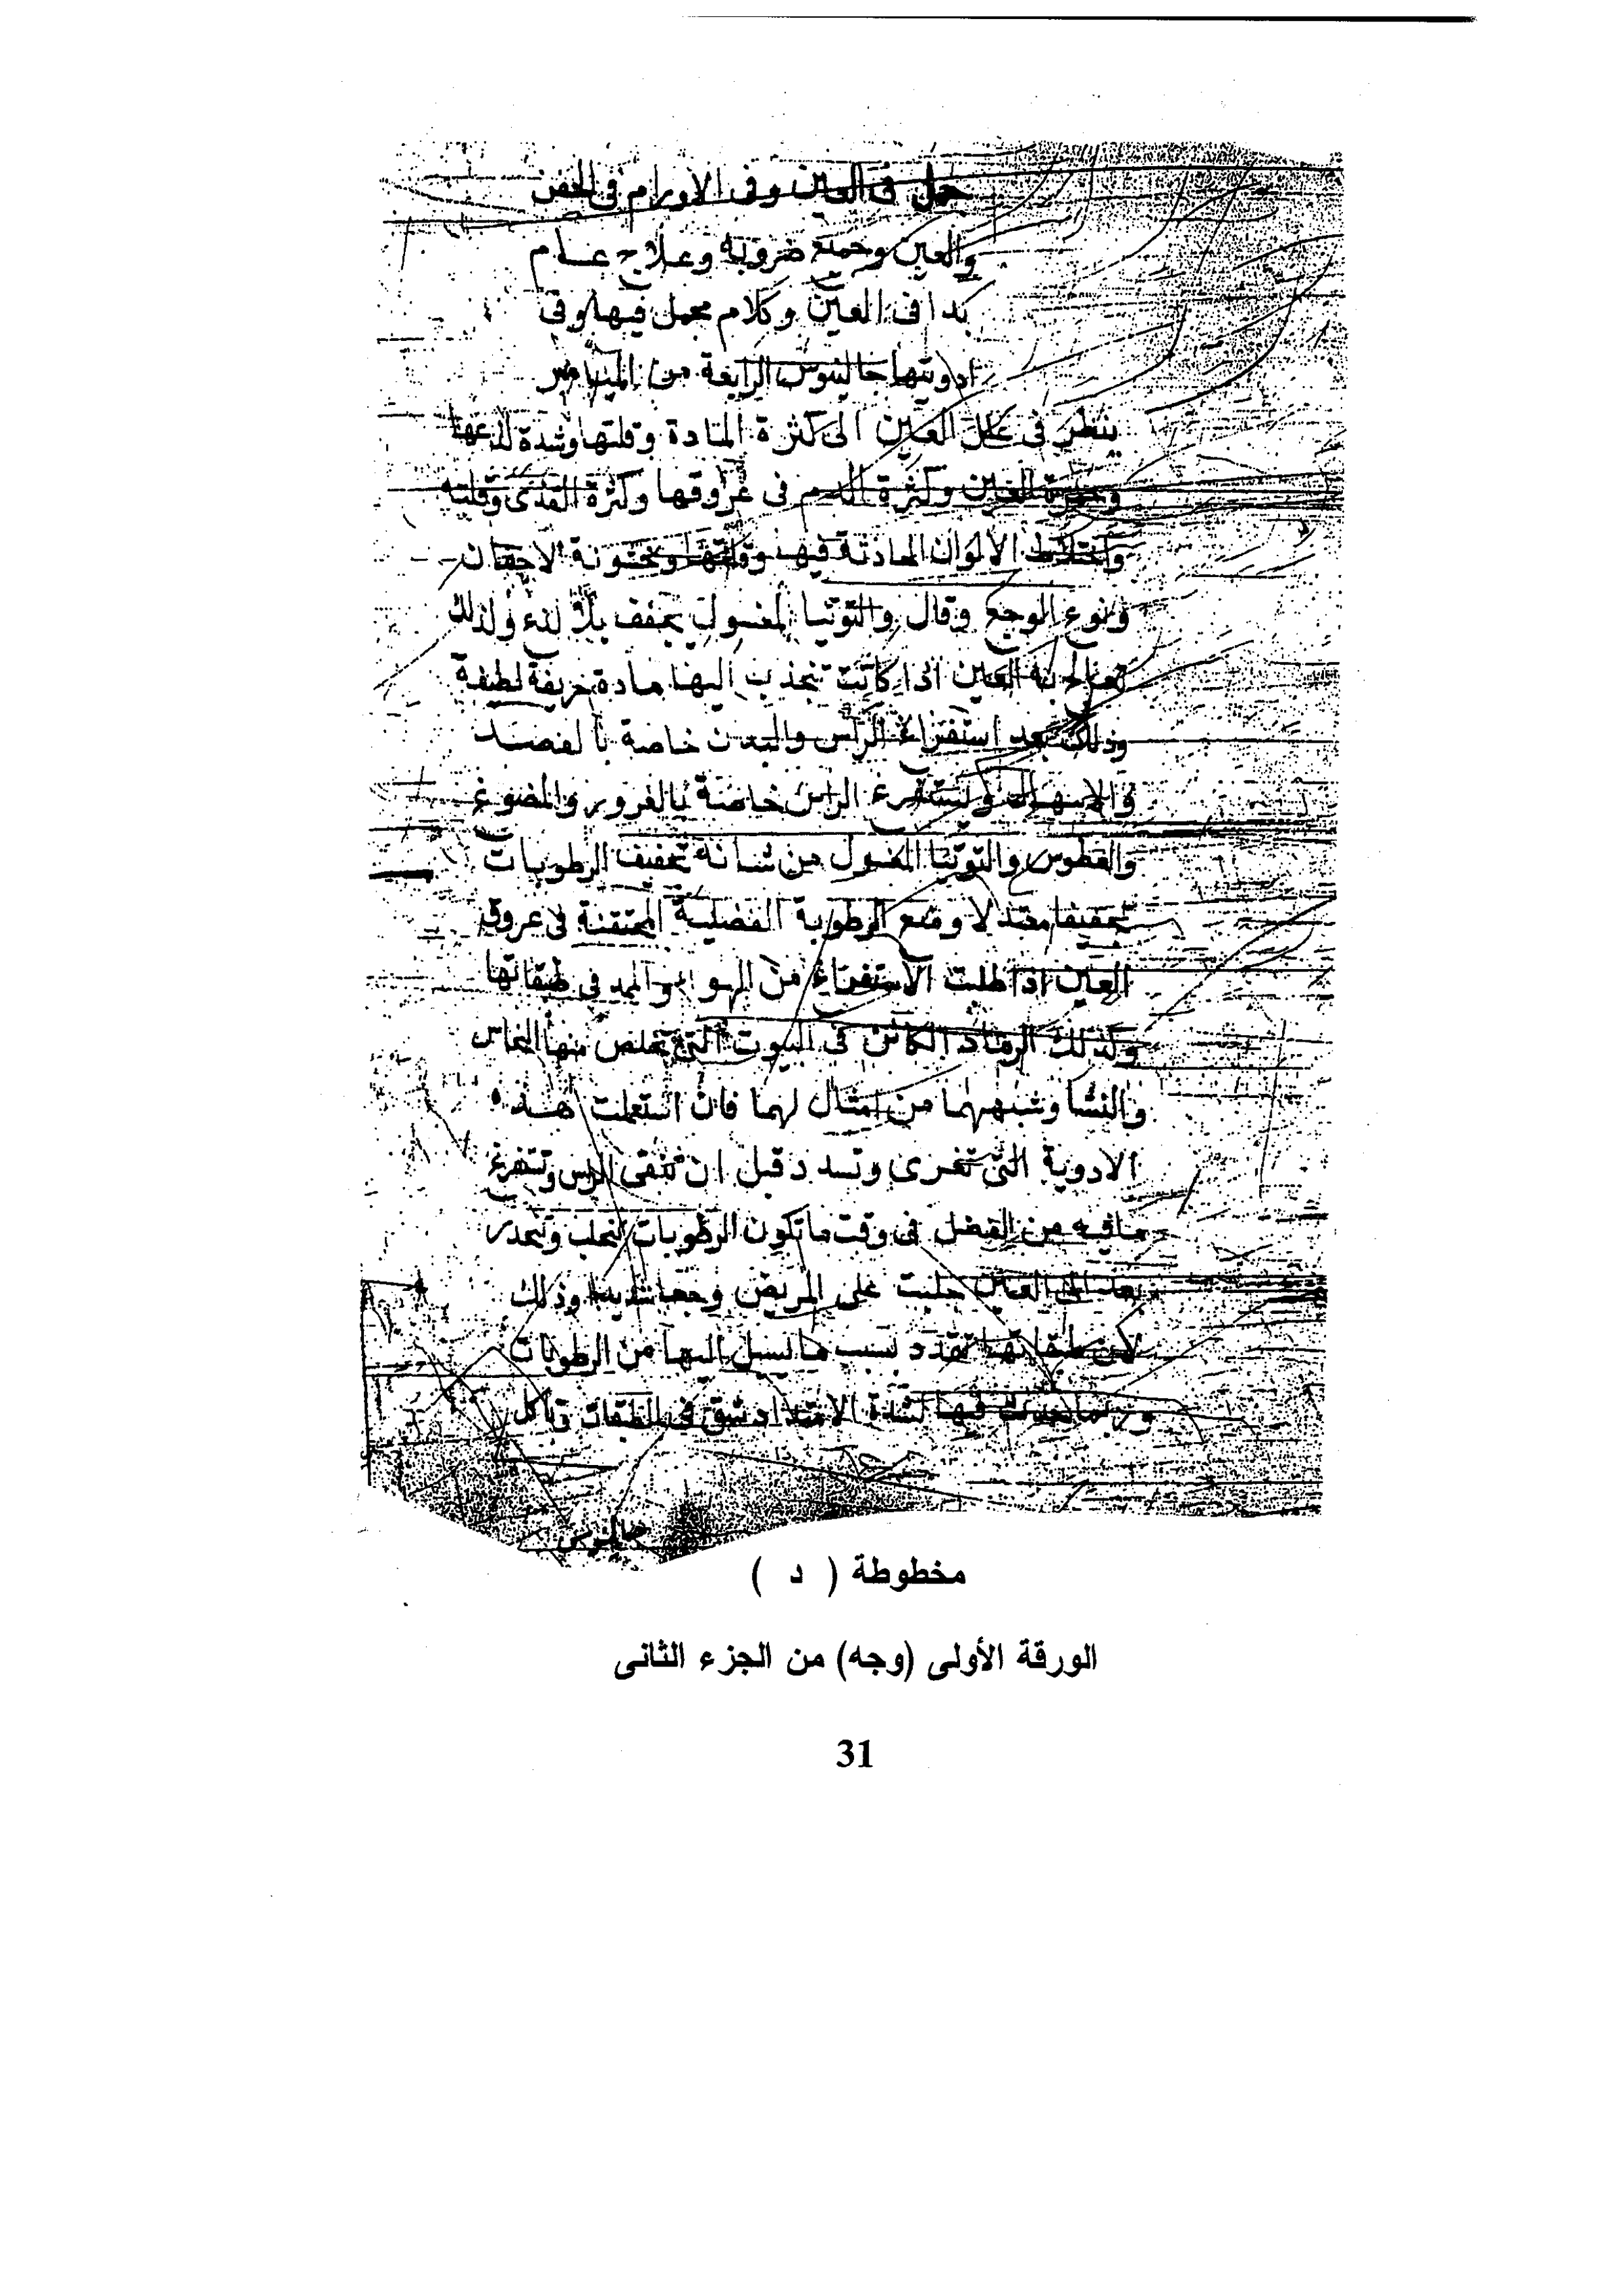 جمل في العين وفي الاورام في الجفن
والعين وجميع ضروبه وعلاج عام
بدا في العين وكلام مجمل فيها وفي
ادويتها جالينوس الرابعة من الميامر
ينظر في علل العين الى كثرة المادة وقلتها وشدة لذعها
وحمرة العين وكثرة الدم في عروقها وكثرة القذى وقلته
واختلاط الالوان الحادثة فيها وقلتها وخشونة الاجفان
ونوع الوجع وقال والتوتيا المغسول يجفف بلا لذع ولذلك
تعالج به العين اذا كانت تنجذب اليها مادة حريفة لطيفة
وذلك بعد استفراغ الراس والبدن خاصة بالفصد
والاسهال ويستفرغ الراس خاصة بالغرور والمضوغ
والعطوس والتوتيا المغسول من شانه تجفيف الرطوبات
تجفيفا معتدلا ومنع الرطوبة الفضلية المحتقنة في عروق
العين اذا طلبت الاستفراغ من في طبقاتها
وكذلك الرماد الكائن في البيوت التي تخلص منها النحاس
والنشا وشبههما من امثال لهما فان استعملت هذه
الادوية التي تغرى وتسدد قبل ان تنقى الراس وتستفرغ
مافيه من الفضل في وقت ما تكون الرطوبات تنحلب وتنحدر
بعد الى العين جلبت على المريض وجعا شديدا وذلك
لان طبقاتها تمدد بسبب ما يسيل اليها من الرطوبات
وربما حدث فيها لشدة الامتداد شق في الطبقات وتاكل
مخطوطة ( د )
الورقة الأولى (وجه) من الجزء الثانى
31